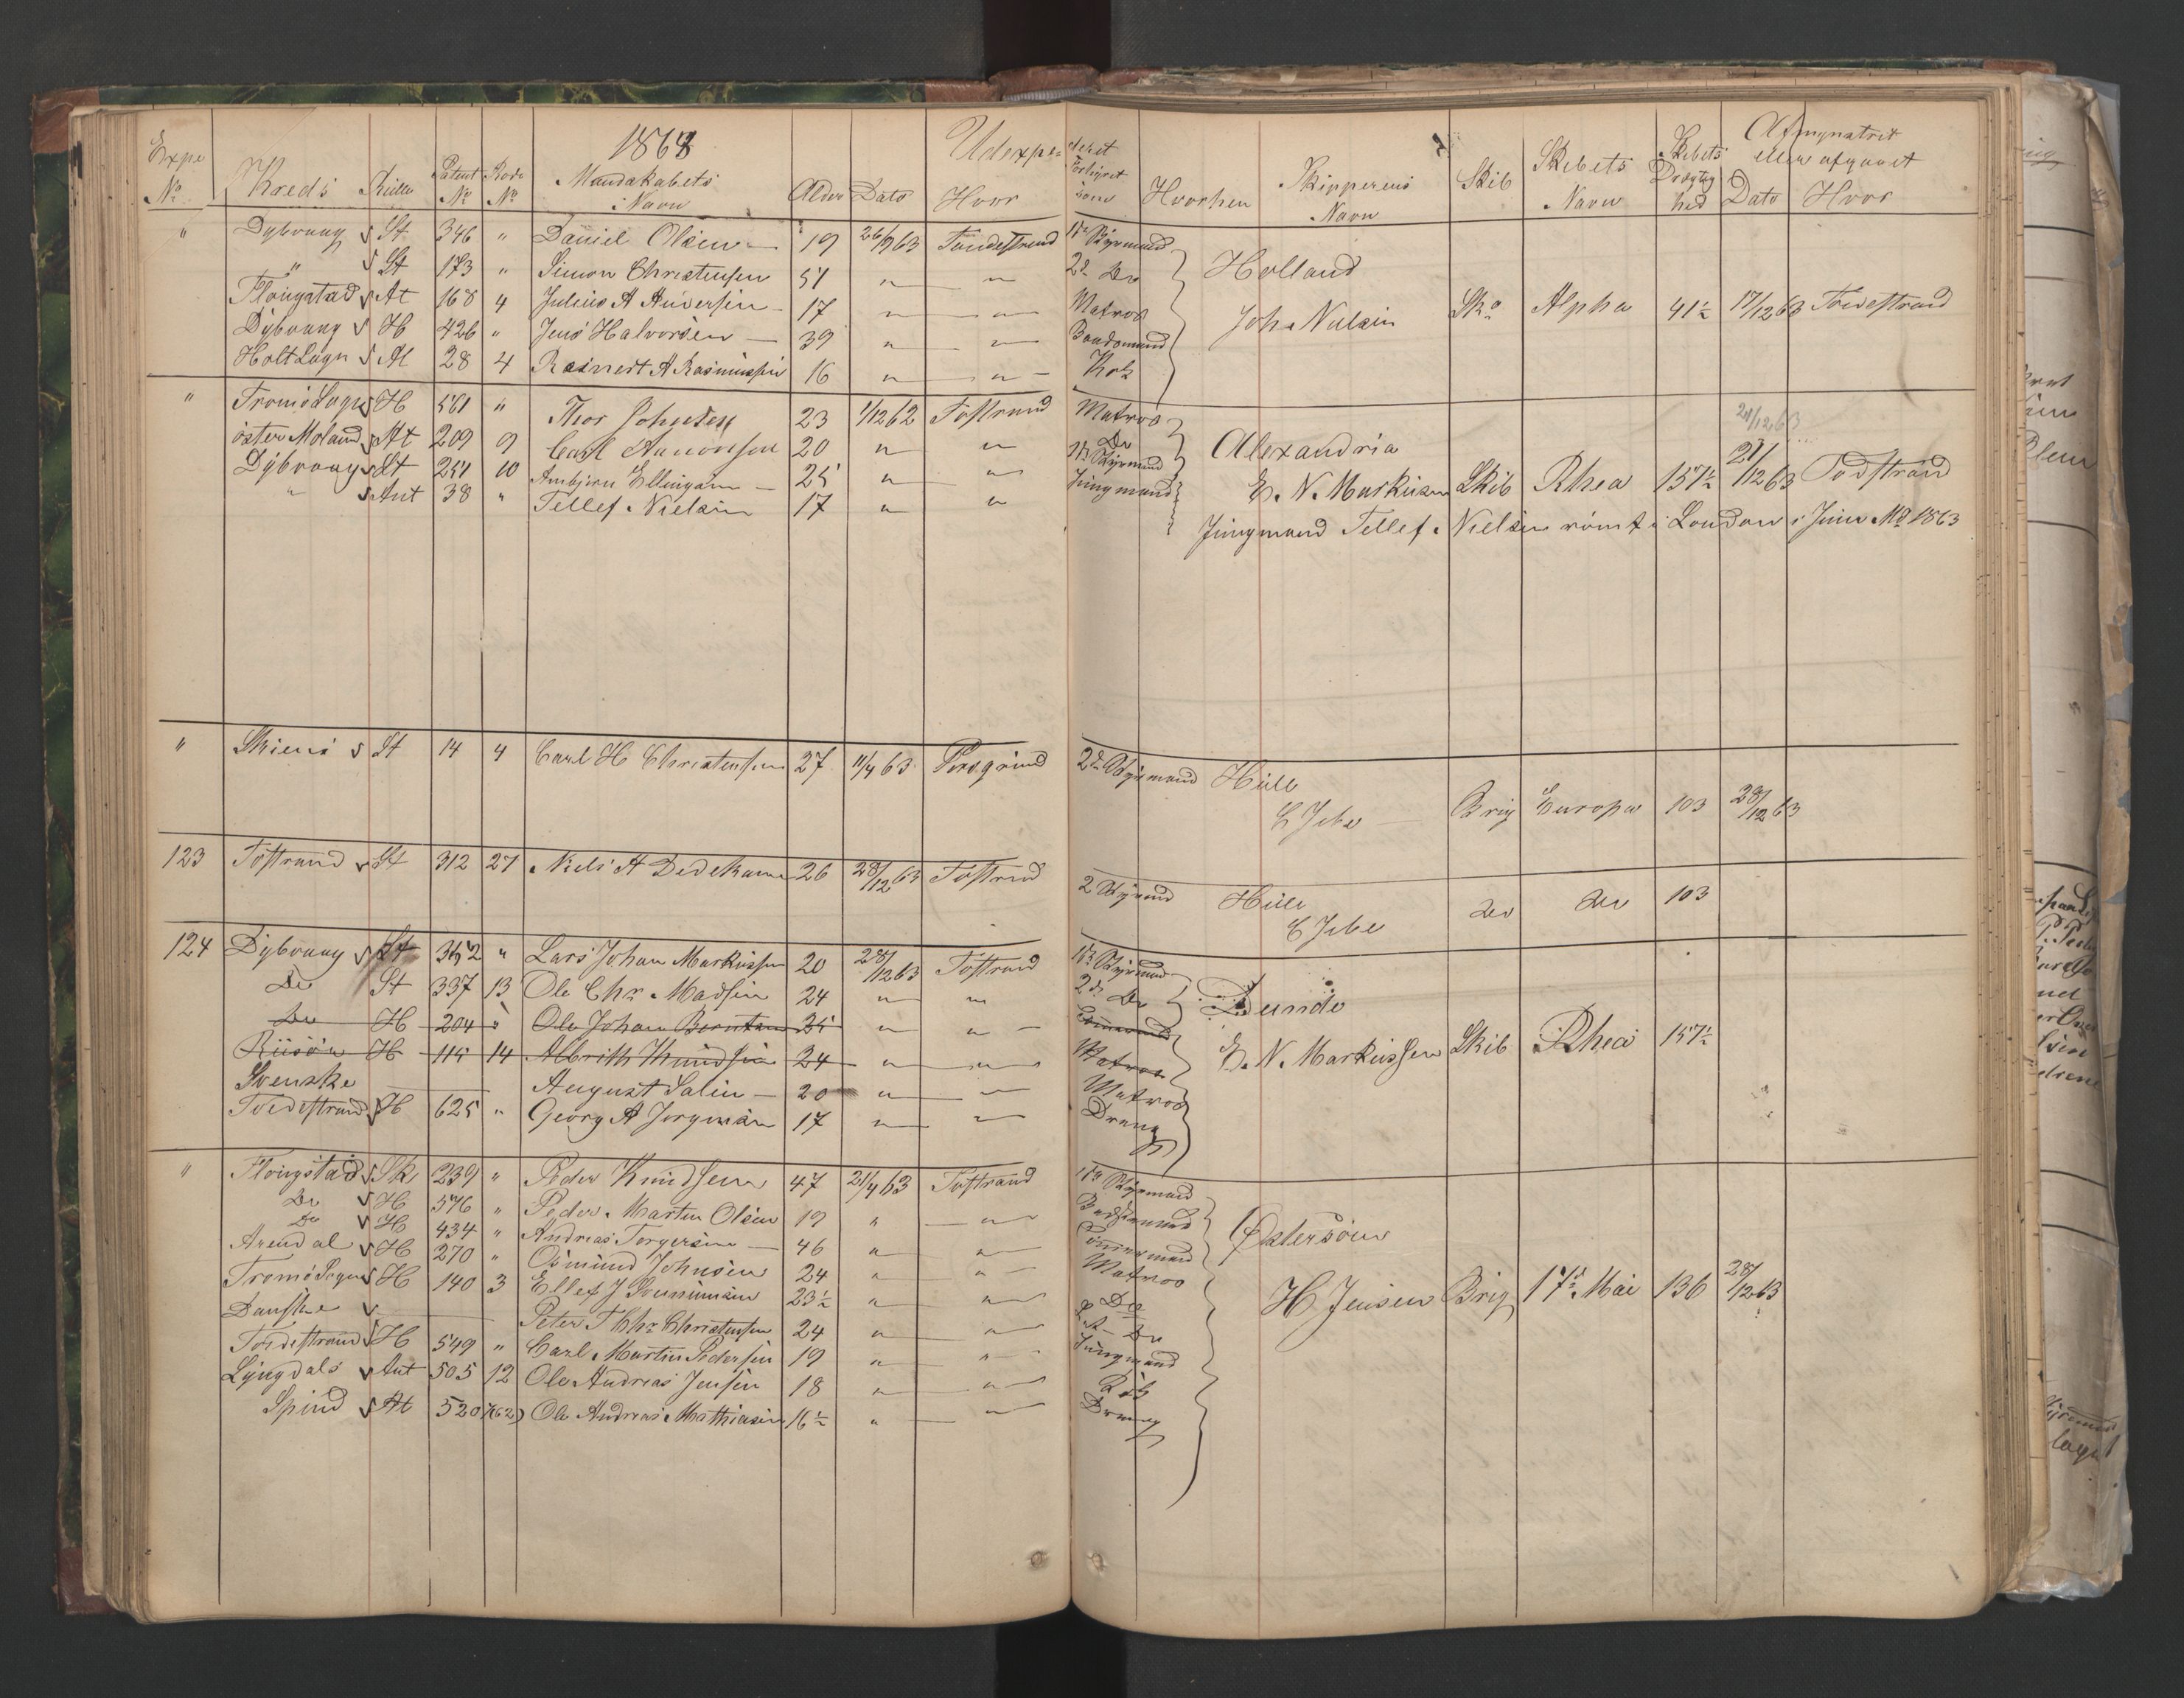 1863 Udexpe= deret Afmynstret
Expe Kreds Rulle Patent Rode Mandskabets Alder Dato Hvor Forhyret Hvorhen Skipperens Skib Skibets Skibets eller afgaaet
No No No Navn som Navn Navn Drægtighed Dato Hvor
" Dybvaag St 346 " Daniel Olsen 19 26/9 63 Tvedestrand 1ste Styrmand Holland
" St 173 " Simon Christensen 51 " " 2d Do
Flougstad At 168 4 Julius A Andersen 17 " " Matros Joh. Nielsen Sk. Alpha 41½ 17/12 63 Tvedestrand
Dybvaag H 426 " Jens Halvorsen 39 " " Baadsmand
Holt Sogn At 28 4 Reinert A Rasmussen 16 " " Kok
" Tromø Sogn H 561 " Thor Johnsen 23 1/12 62 Tvstrand Matros 21/12 63
öster Moland At 209 9 Carl Aanonsen 20 " " Do Alexandria
Dybvaag St 251 10 Anbjørn Ellingsen 25 " " 1ste Styrmand E. N. Markussen Skib Rhea 157½ 21/12 63 Tvdstrand
" Ant 38 " Tellef Nielsen 17 " " Jungmand
Jungmand Tellef Nielsen römt i London i Juni Md 1863
" Skiens St 14 4 Carl H Christensen 27 11/4 63 Porsgrund 2den Styrmand Hull
C Jebe Brig Europa 103 28/12 63
123 Tvstrand St 312 27 Niels A Dedekam 26 28/12 63 Tvstrand 2 Styrmand Hull do do 103
C Jebe
124 Dybvaag St 352 " Lars Johan Markussen 20 28/12 63 Tvstrand 1ste Styrmand
Do St 337 13 Ole Chr. Madsen 24 " " 2d Do Dundo
Do H 204 " Ole Johan Berntsen 35 " " Tømmermand
Riisöer H 115 14 Albrith Knudsen 24 " " Matros E. N. Markussen Skib Rhea 157½
Svenske August Salin 20 " " Matros
Tvedestrand H 625 " Georg A Jörgensen 17 " " Dreng
" Flougstad Sk 239 " Peder Knudsen 47 21/4 63 Tvstrand 1ste Styrmand
Do H 576 " Peder Martin Olsen 19 " " Baadsmand
Do H 434 " Andreas Torgersen 46 " " Tømmermand Østersöen
Arendal H 270 " Osmund Johnsen 24 " " Matros
Tromö Sogn H 140 3 Ellef J Svenningsen 23½ " " Do H Jensen Brig 17de Mai 136 28/12 63
Danske Peter T Chr Christensen 24 " " Do
Tvedestrand H 549 " Carl Martin Pedersen 19 " " Jungmand
Lyngdals Ant 505 12 Ole Andreas Jensen 18 " " Kok
Spind At 520 (62) Ole Andreas Mathiasen 16½ " " Dreng